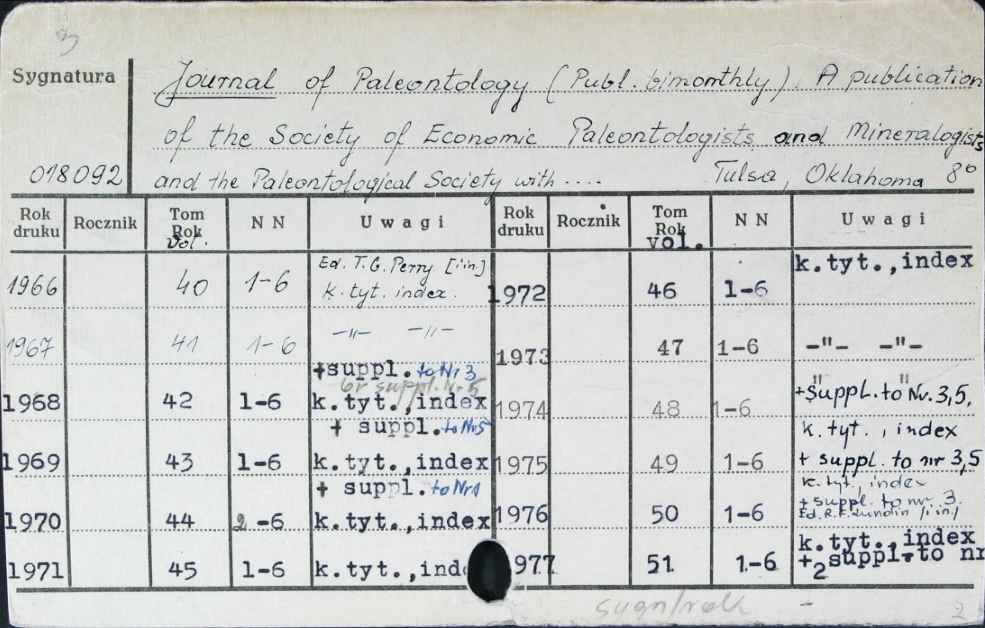 Sygnatura
Journal of Paleontology (Publ. bimonthly). A publication
of the Society of Economic Paleontologists and Mineralogists
018092 and the Paleontological Society with .... Tulsa, Oklahoma 8°
Rok druku Rocznik Tom Rok vol. NN Uwagi Rok druku Rocznik Tom Rok vol. NN Uwagi
1966 40 1-6 Ed. T.G. Perry [i in.] k. tyt. index. 1972 46 1-6 k.tyt.,index
1967 41 1-6 -"- -"- 1973 47 1-6 -"- -"-
1968 42 1-6 +suppl. to Nr 3 k.tyt.,index 1974 48 1-6 " " +suppl. to Nr. 3,5,
1969 43 1-6 + suppl. to Nr5 k.tyt.,index 1975 49 1-6 k. tyt. , index + suppl. to nr 3,5
1970 44 2-6 + suppl. to Nr1 k.tyt.,index 1976 50 1-6 k. tyt., index + suppl. to nr. 3. Ed. R.F. Lundin [i in]
1971 45 1-6 k.tyt.,ind 977 51 1-6 k.tyt.,index +2suppl.to nr
2